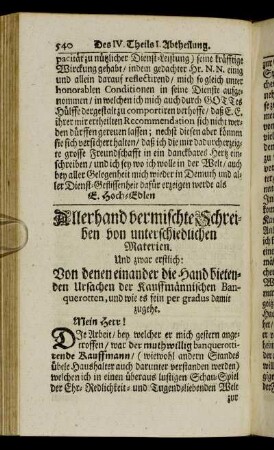 540 Des IV. Theils I. Abtheilung.
pacität zu nützlicher Dienst-Leistung) seine kräfftige
Würckung gehabt / indem gedachter Hr. N. N. einig
und allein darauf reflectirend / mich so gleich unter
honorablen Conditionen in seine Dienste aufge-
nommen / in welchen ich mich auch durch GOTTes
Hülffe dergestalt zu comportiren verhoffe / daß E. E.
ihrer mir ertheilten Recommendation sich nicht wer-
den dürffen gereuen lassen; nechst diesen aber können
sie sich versichert halten / daß ich die mir dadurch erzeig-
te grosse Freundschafft in ein danckbares Hertz ein-
schreiben / und ich sey wo ich wolle in der Welt / auch
bey aller Gelegenheit mich wieder in Demuth und al-
ler Dienst-Geflissenheit dafür erzeigen werde als
E. Hoch-Edlen
Allerhand vermischte Schrei-
ben von unterschiedlichen
Materien.
Und zwar erstlich:
Von denen einander die Hand bieten-
den Ursachen der Kauffmännischen Ban-
querotten, und wie es fein per gradus damit
zugehe.
Mein Herr!
DIe Arbeit / bey welcher er mich gestern ange-
troffen / war der muthwillig banquerotti-
rende Kauffmann / (wiewohl andern Standes
übele Haushalter auch darunter verstanden werden)
welchen ich in einen überaus lustigen Schau-Spiel
der Ehr- Redlichkeit- und Tugendliebenden Welt
zur